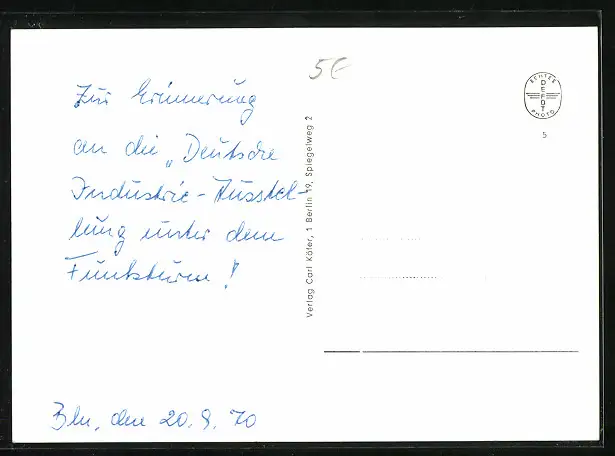 Zur Erinnerung
an die „Deutsche
Industrie-Ausstel-
lung unter dem
Funkturm!
Bln, den 20.9.70
5€
Verlag Carl Köfer, 1 Berlin 19, Spiegelweg 2
ECHTES
DEFOT
PHOTO
5